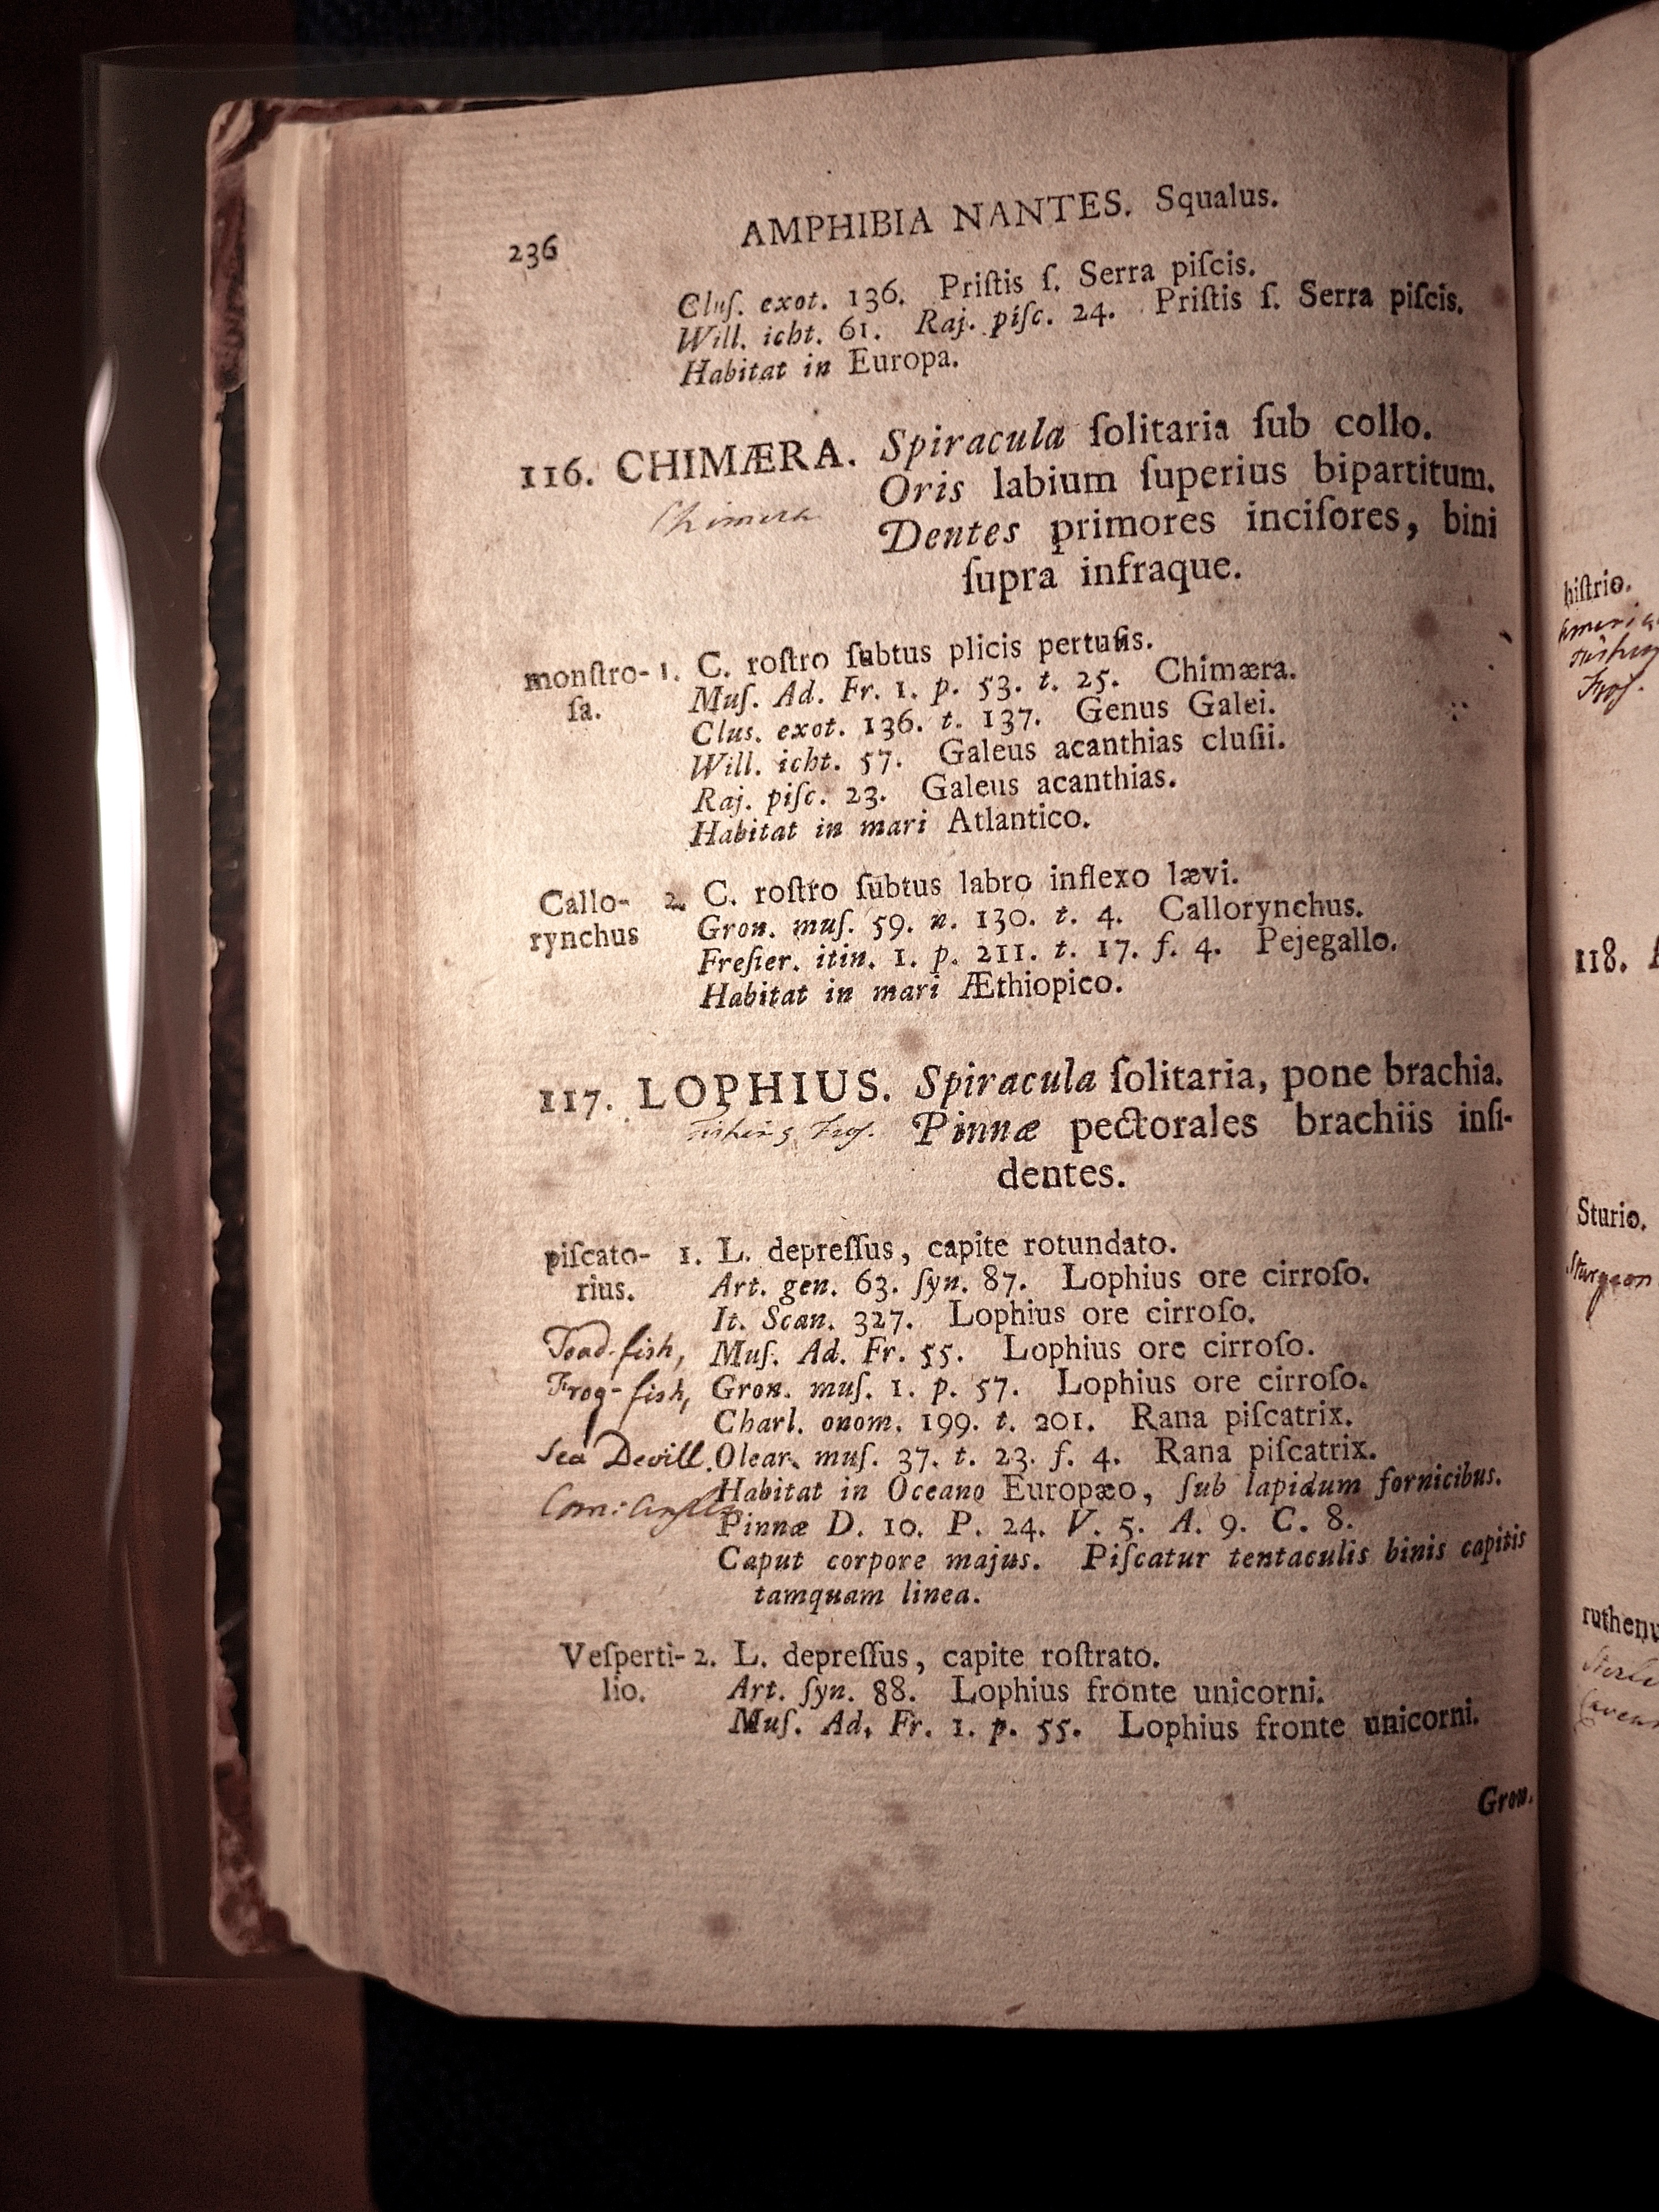 236 AMPHIBIA NANTES. Squalus.
Cluſ. exot. 136. Priſtis ſ. Serra piſcis.
Will. icht. 61. Raj. piſc. 24. Priſtis ſ. Serra piſcis.
Habitat in Europa.
116. CHIMÆRA. Spiracula ſolitaria ſub collo.
Oris labium ſuperius bipartitum.
Chimera
Dentes primores inciſores, bini
ſupra infraque.
monſtro- 1. C. roſtro ſubtus plicis pertuſis.
ſa. Muſ. Ad. Fr. 1. p. 53. t. 25. Chimæra.
Clus. exot. 136. t. 137. Genus Galei.
Will. icht. 57. Galeus acanthias cluſii.
Raj. piſc. 23. Galeus acanthias.
Habitat in mari Atlantico.
Callo- 2. C. roſtro ſubtus labro inflexo lævi.
rynchus Gron. muſ. 59. n. 130. t. 4. Callorynchus.
Freſier. itin. 1. p. 211. t. 17. f. 4. Pejegallo.
Habitat in mari Æthiopico.
117. LOPHIUS. Spiracula ſolitaria, pone brachia.
Fishing Frog. Pinnæ pectorales brachiis inſi-
dentes.
piſcato- 1. L. depreſſus, capite rotundato.
rius. Art. gen. 63. ſyn. 87. Lophius ore cirroſo.
It. Scan. 327. Lophius ore cirroſo.
Toad-fish, Muſ. Ad. Fr. 55. Lophius ore cirroſo.
Frog-fish, Gron. muſ. 1. p. 57. Lophius ore cirroſo.
Charl. onom. 199. t. 201. Rana piſcatrix.
Sea Devill. Olear. muſ. 37. t. 23. f. 4. Rana piſcatrix.
Habitat in Oceano Europæo, ſub lapidum fornicibus.
Pinnæ D. 10. P. 24. V. 5. A. 9. C. 8.
Caput corpore majus. Piſcatur tentaculis binis capitis
tamquam linea.
Veſperti- 2. L. depreſſus, capite roſtrato.
lio. Art. ſyn. 88. Lophius fronte unicorni.
Muſ. Ad. Fr. 1. p. 55. Lophius fronte unicorni.
Gron.
hiſtrio.
118.
Sturio.
Sturgeon